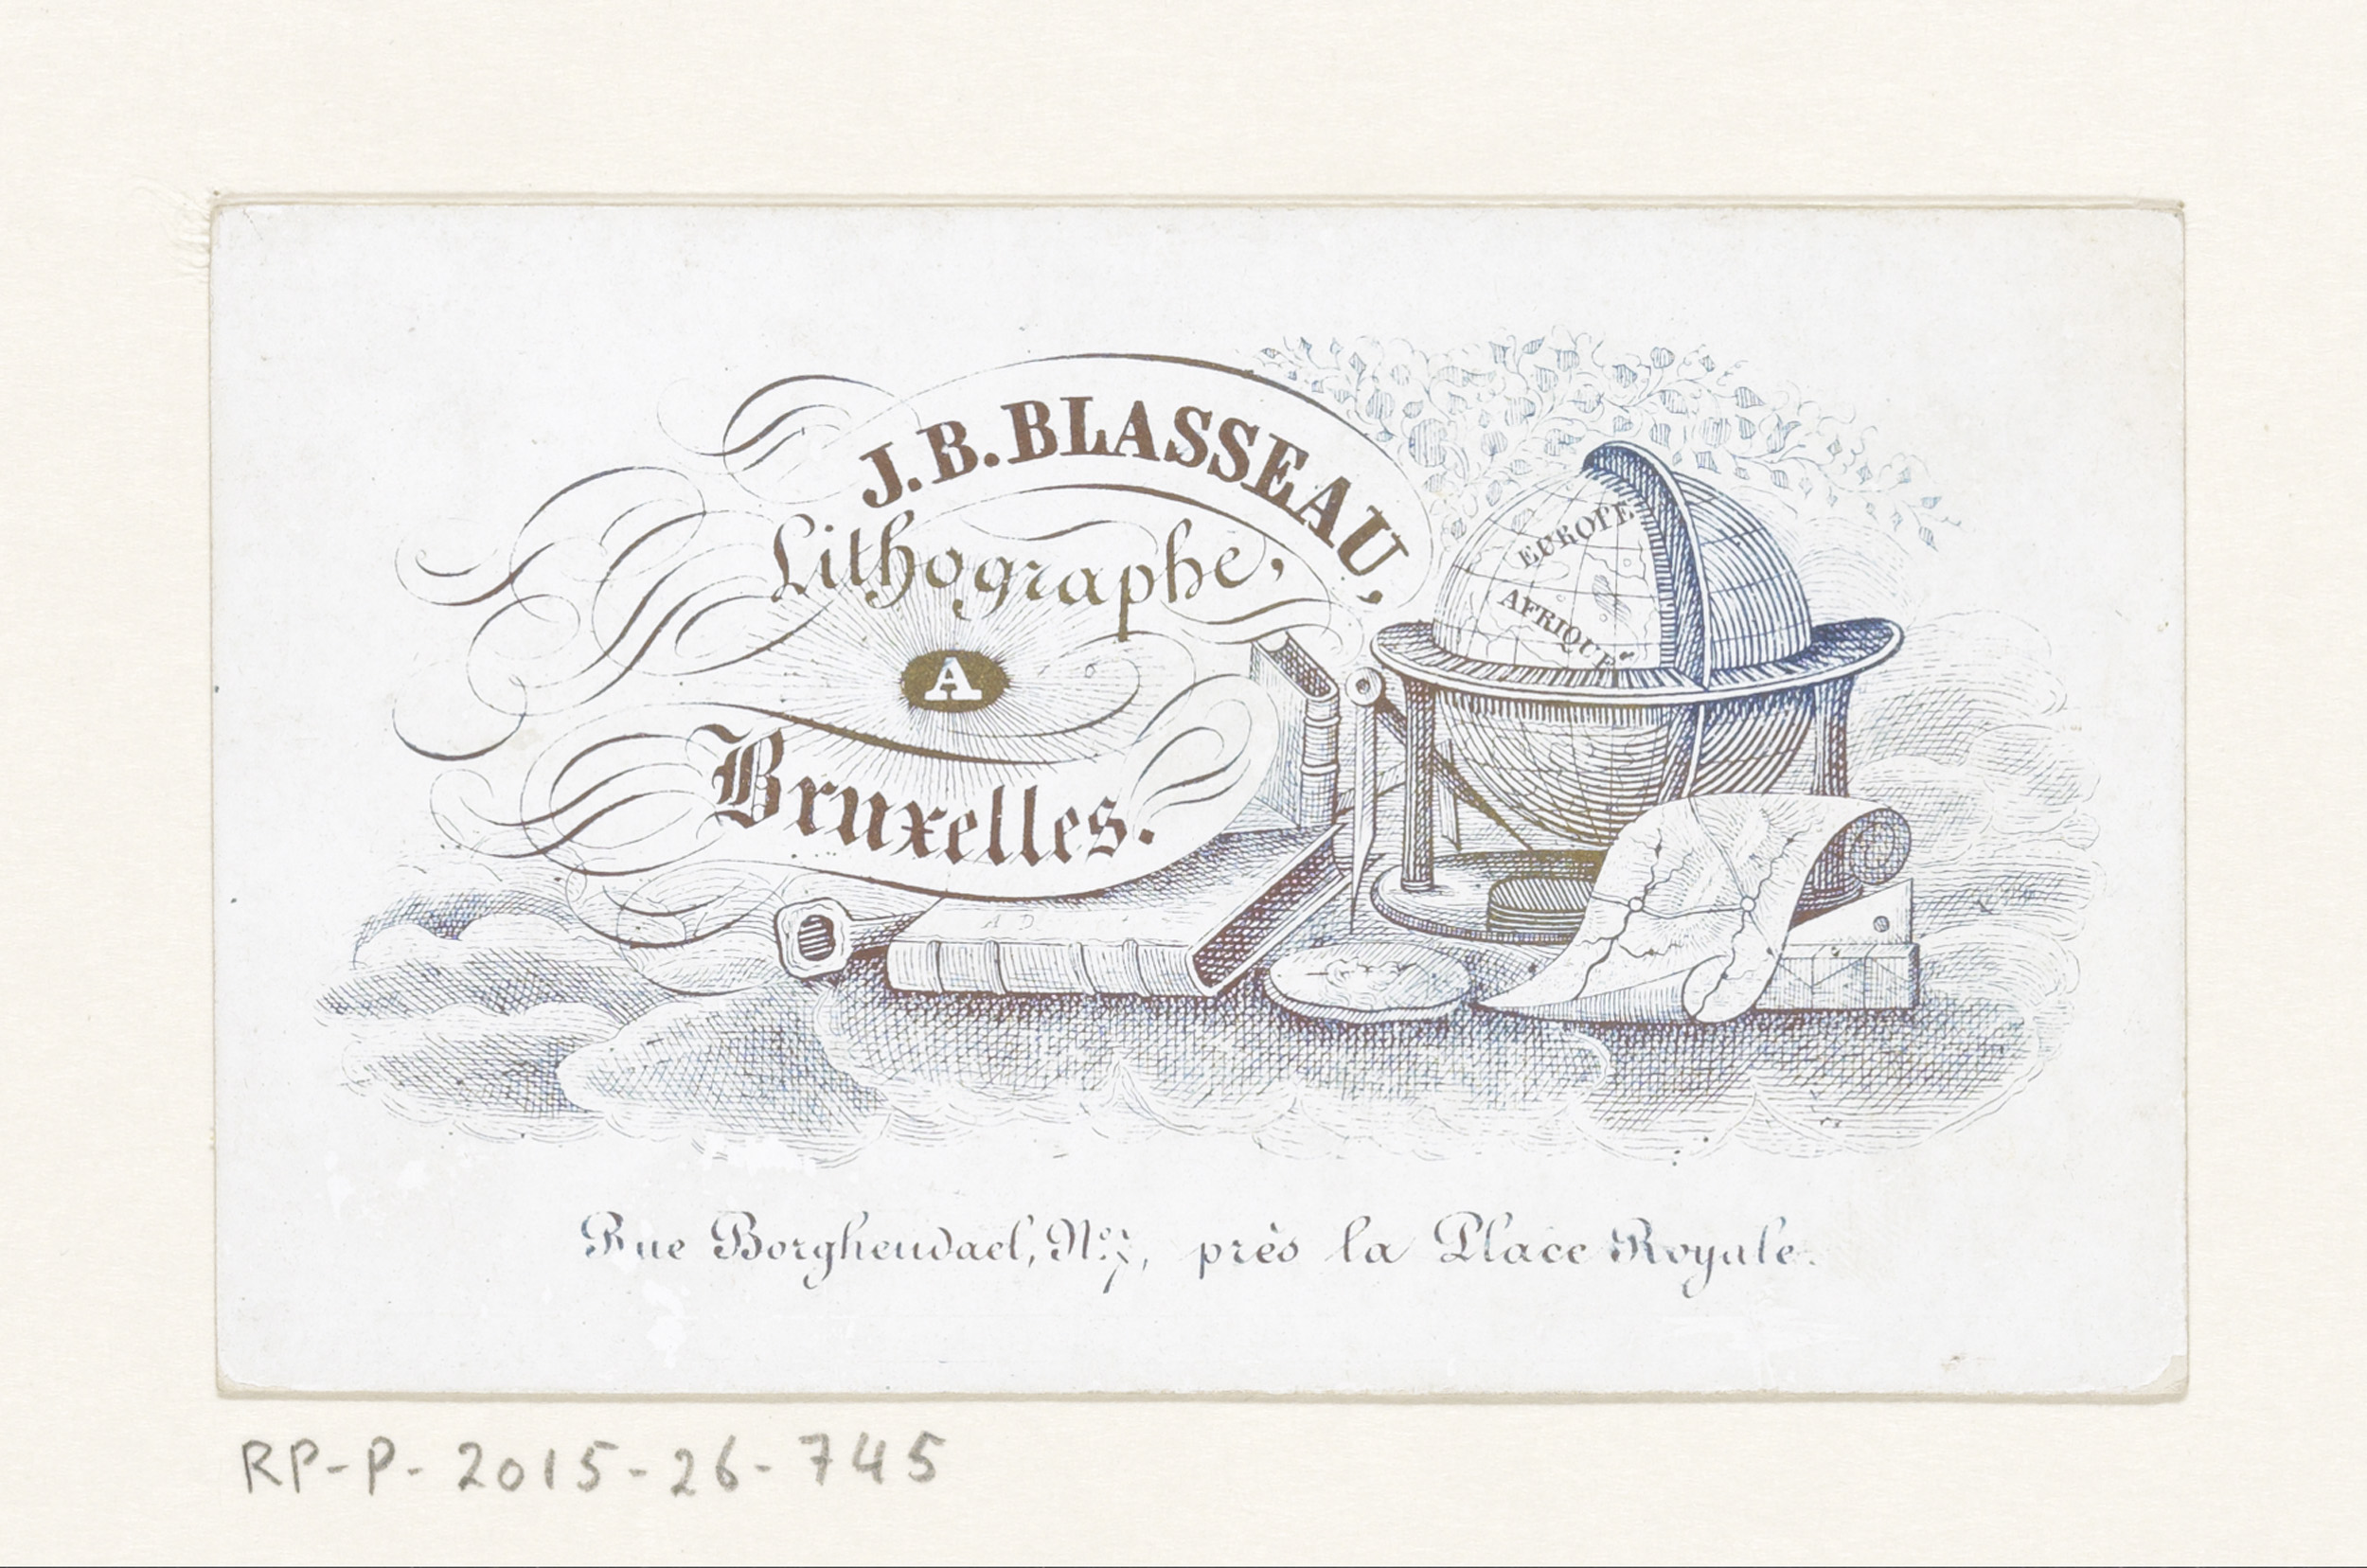 J. B. BLASSEAU,
Lithographe,
A
Bruxelles.
EUROPE
AFRIQUE
A D
Rue Borghendael, Nº 7, près la Place Royale.
RP-P-2015-26-745